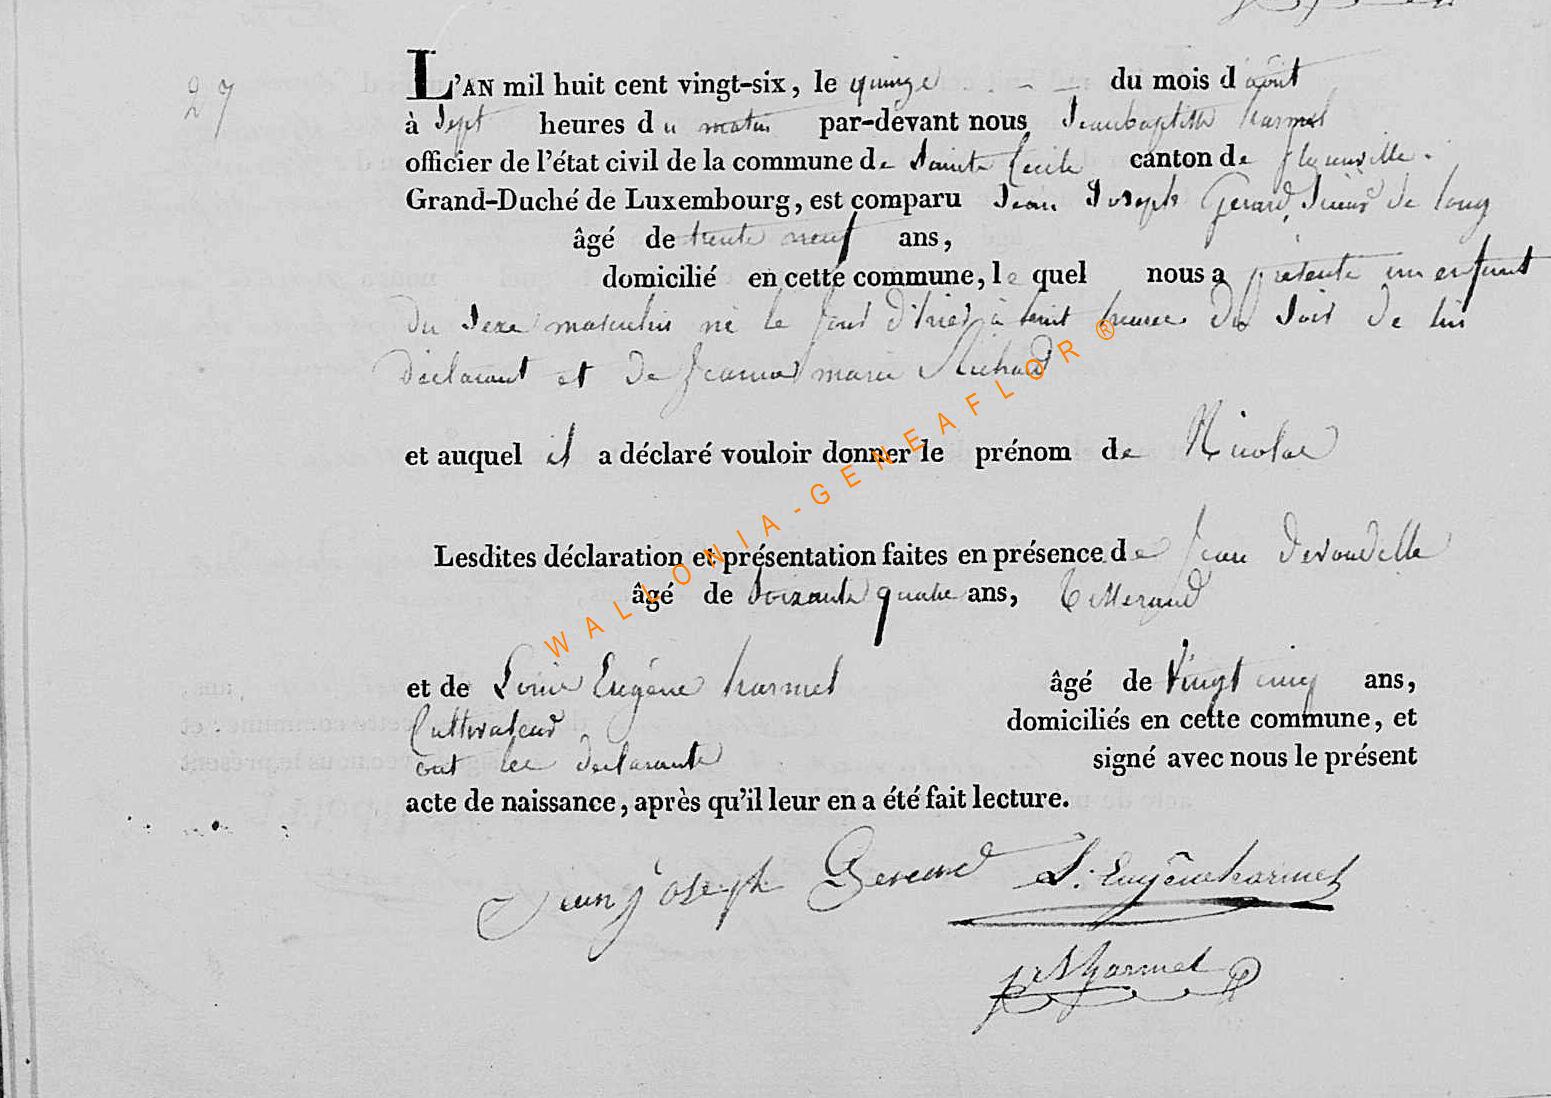 27
L'AN mil huit cent vingt-six, le quinze du mois d'août
à Sept heures du matin par-devant nous Jeanbaptiste harmel
officier de l'état civil de la commune de Sainte Cecile canton de florenville.
Grand-Duché de Luxembourg, est comparu Jean Joseph Gerard, Scieur de long
âgé de trente neuf ans,
domicilié en cette commune, le quel nous a présenté un enfant
du Sexe masculin né le jour d'hier à huit heures du Soir de lui
déclarant et de Jeanne marie Richard
et auquel il a déclaré vouloir donner le prénom de Nicolas
Lesdites déclaration et présentation faites en présence de Jean devaudelle
âgé de Soixante quatre ans, Tisserand
et de Louis Eugène harmel âgé de Vingt cinq ans,
Cultivateur domiciliés en cette commune, et
ont les déclarants signé avec nous le présent
acte de naissance, après qu'il leur en a été fait lecture.
Jean joseph Gerard L: Eugène harmel
harmel
WALLONIA-GENEAFLOR ®